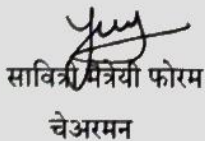 सावित्री मैत्रेयी फोरम
चेअरमन